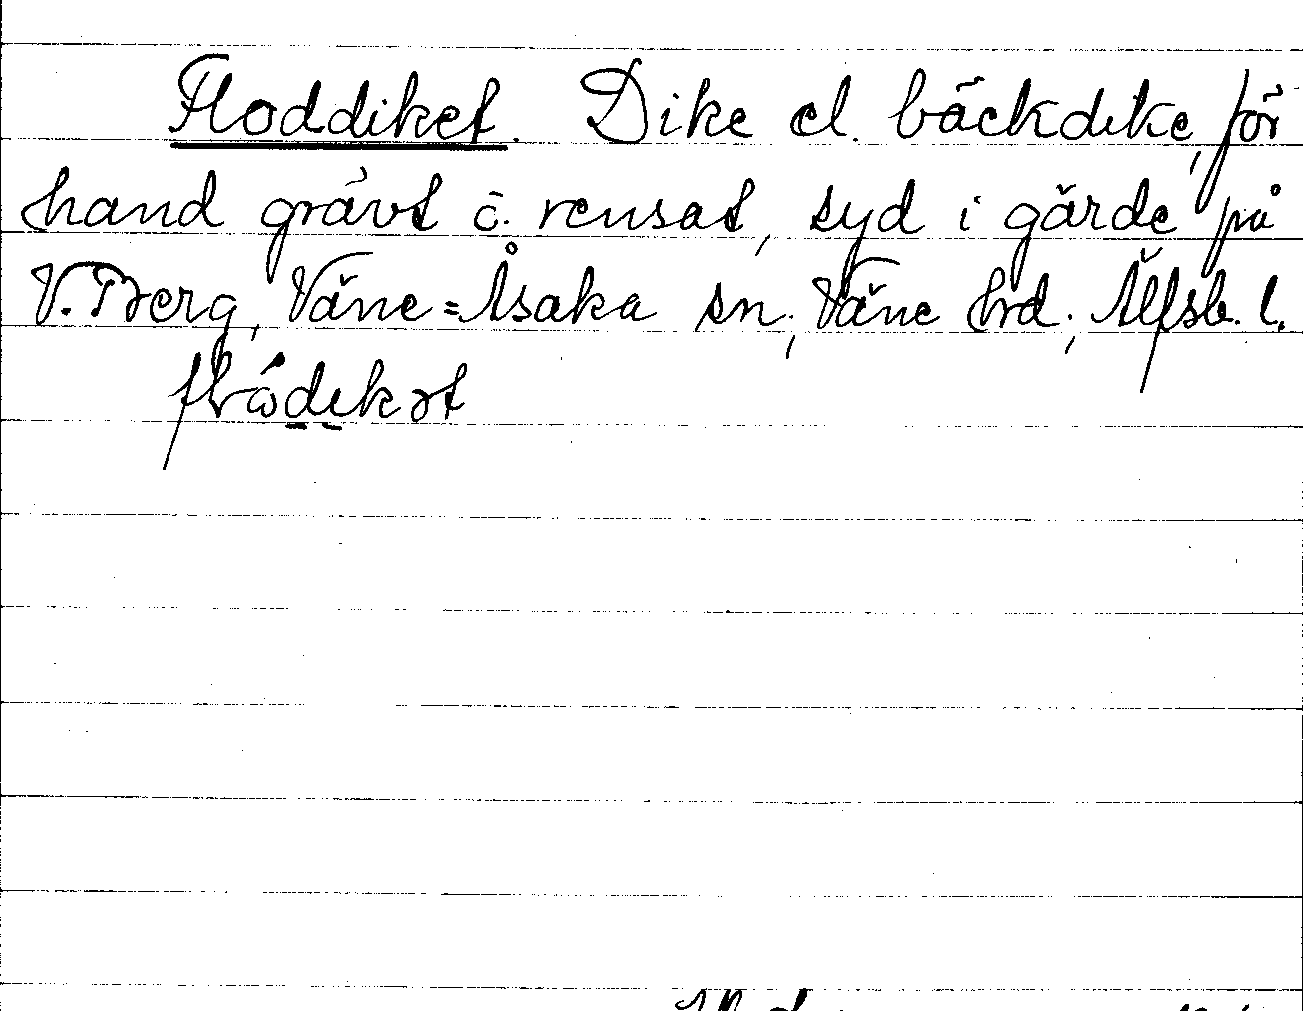 Floddiket. Dike el. bäckdike, för
hand grävt o. rensat, syd i gärde på
V. Berg, Väne=Åsaka sn, Väne hrd, Älfsb. l.